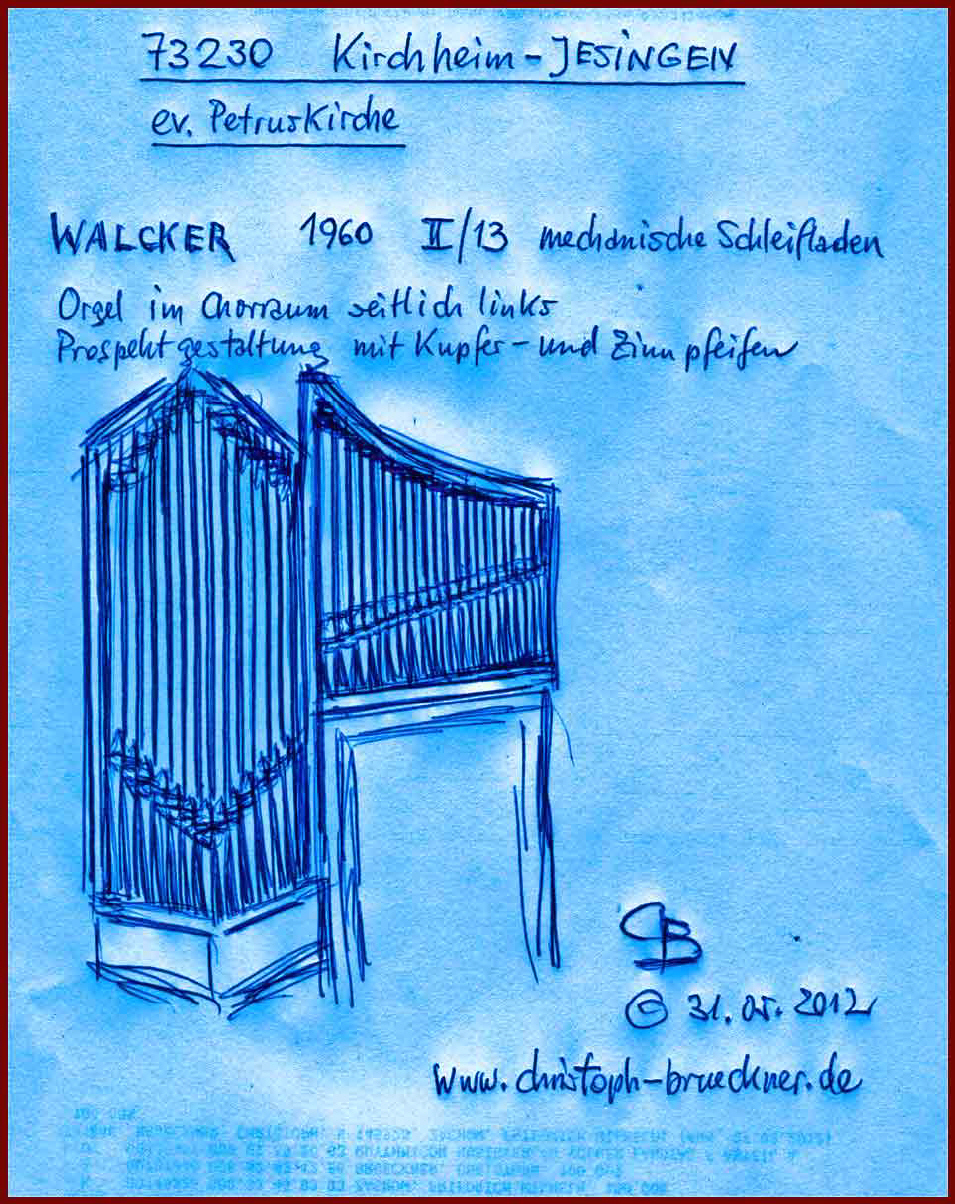 73230 Kirchheim-JESINGEN
ev. Petruskirche
WALCKER 1960 II/13 mechanische Schleifladen
Orgel im Chorraum seitlich links
Prospektgestaltung mit Kupfer- und Zinnpfeifen
CB
© 31.05.2012
www.christoph-brueckner.de